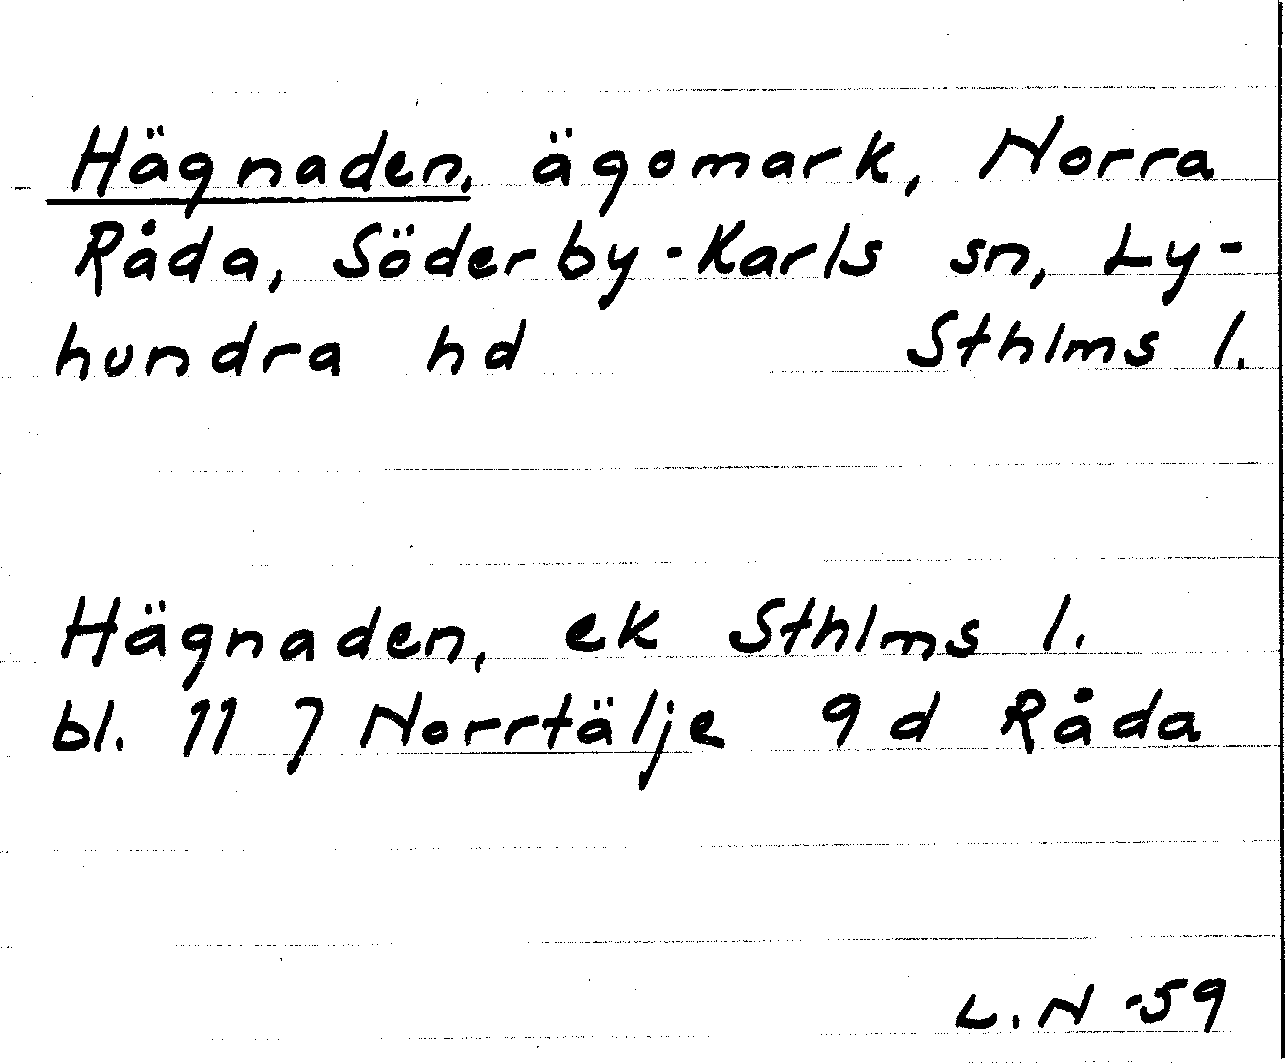 Hägnaden, ägomark, Norra
Råda, Söderby-Karls sn, Ly-
hundra hd Sthlms l.
Hägnaden, ek Sthlms l.
bl. 11 7 Norrtälje 9 d Råda
L. N -59